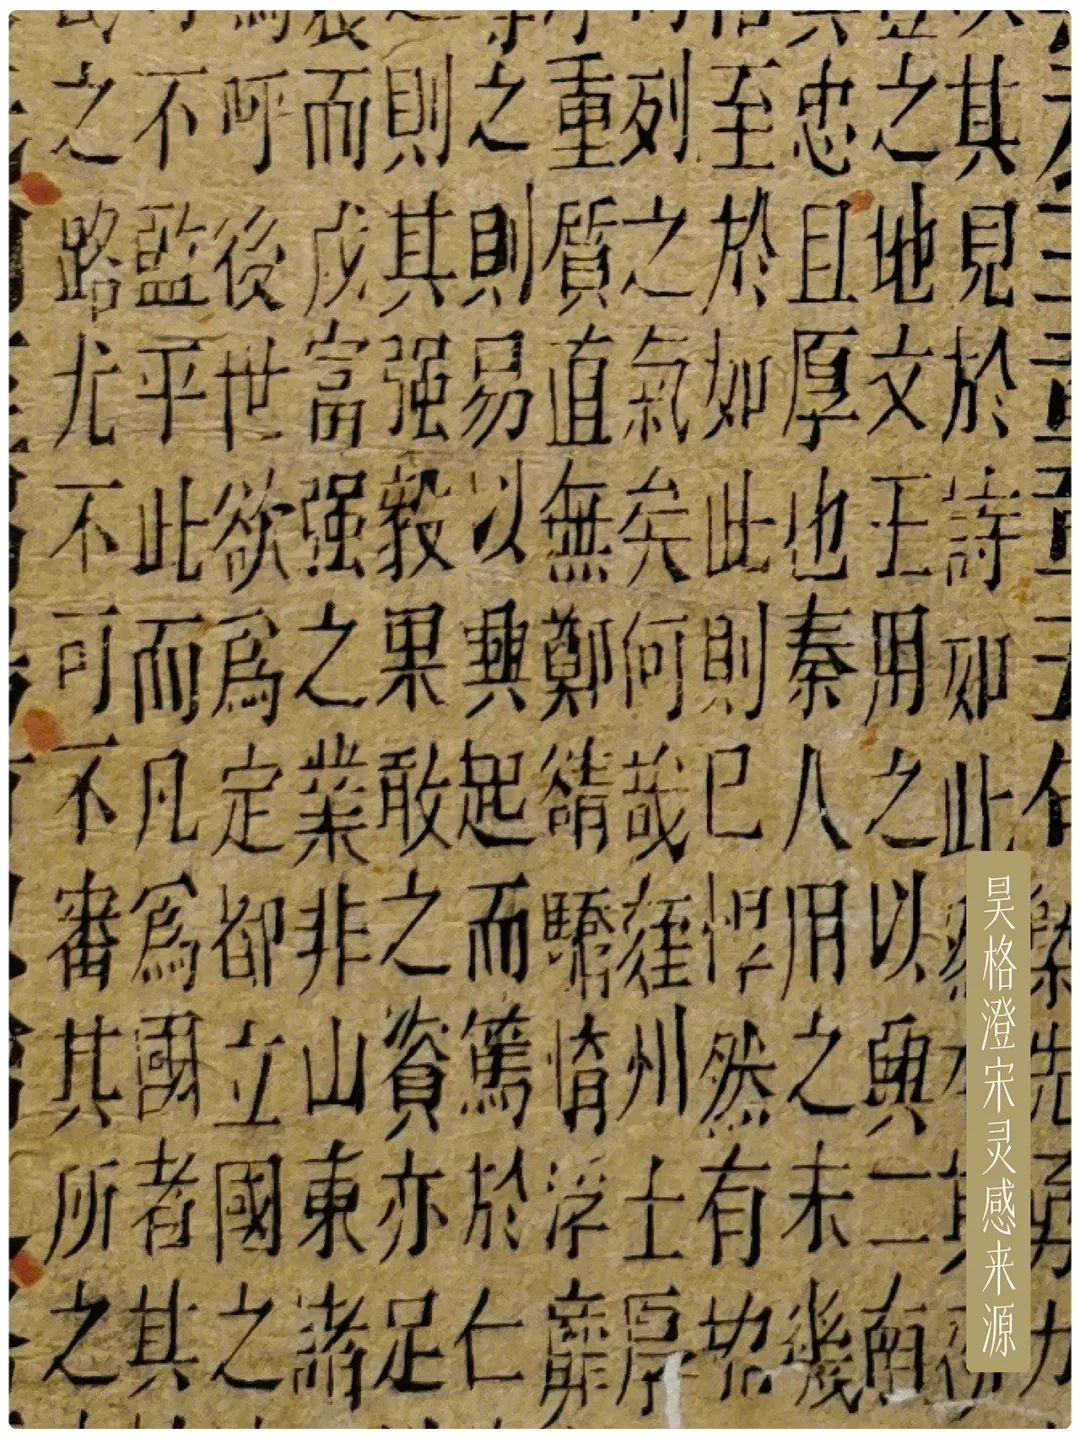 先勇力
其見於詩如此
之地文王用之以興二南
忠且厚也秦人用之未幾
至於如此則已悍然有招
列之氣矣何哉雍州土厚
重質直無鄭衛驕惰浮靡
之則易以興起而篤於仁
則其强毅果敢之資亦足
而成富强之業非山東諸
呼後世欲爲定都立國之
不監平此而凡爲國者其
之路尤不可不審其所之
昊格澄宋灵感来源